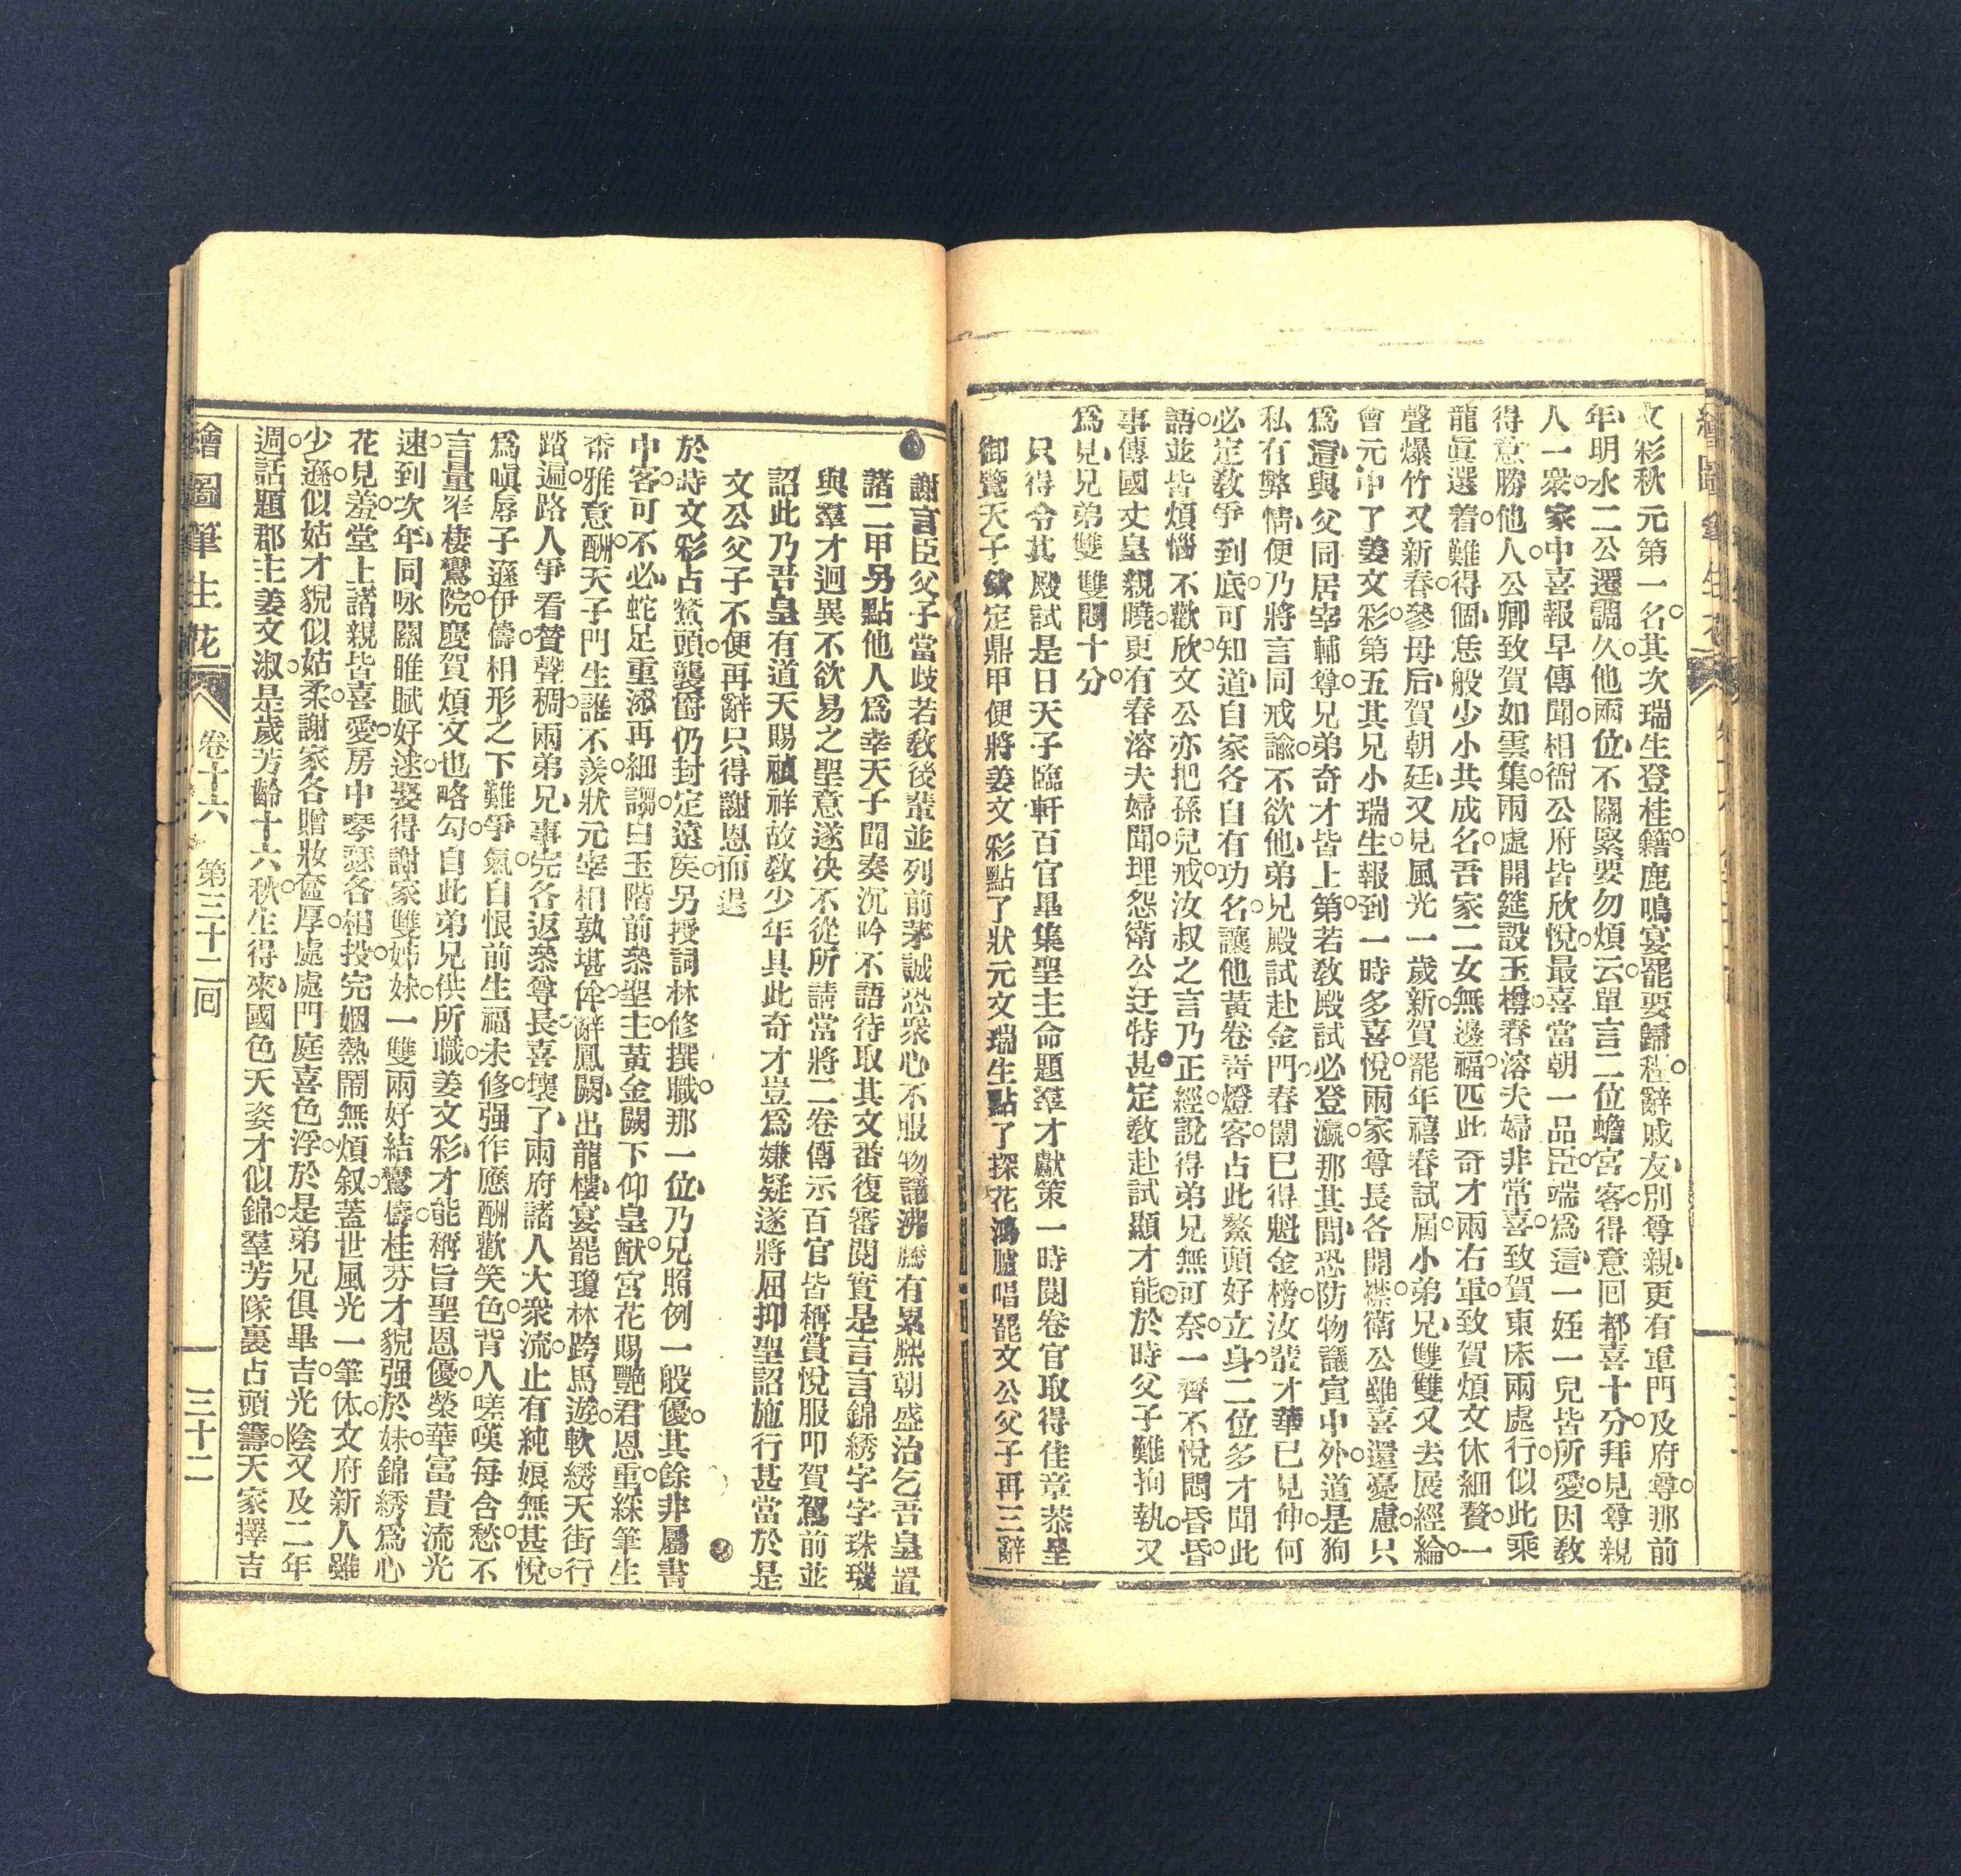 繪圖筆生花
文彩秋元第一名其次瑞生登桂籍鹿鳴宴罷要歸程辭戚友別尊親更有軍門及府尊那前
年明水二公還謫久他兩位不關緊要勿煩云單言二位蟾宮客得意回都喜十分拜見尊親
人一衆家中喜報早傳聞相衙公府皆欣悅最喜當朝一品臣端爲這一姪一兒皆所愛因教
得意勝他人公卿致賀如雲集兩處開筵設玉樽春溶夫婦非常喜致賀東床兩處行似此乘
龍眞選着難得個恁般少小共成名吾家二女無邊福匹此奇才兩右軍致賀煩文休細贅一
聲爆竹又新春參母后賀朝廷又見風光一歲新賀罷年禧春試屆小弟兄雙雙又去展經綸
會元中了姜文彩第五其兄小瑞生報到一時多喜悅兩家尊長各開襟衛公雖喜還憂慮只
爲這與父同居宰輔尊兄弟奇才皆上第若教殿試必登瀛那其間恐防物議宣中外道是狥
私有弊情便乃將言同戒諭不欲他弟兄殿試赴金門春闈已得魁金榜汝輩才華已見伸何
必定教爭到底可知道自家各自有功名讓他黃卷靑燈客占此鰲頭好立身二位多才聞此
語並皆煩惱不歡欣文公亦把孫兒戒汝叔之言乃正經說得弟兄無可奈一齊不悅悶昏昏
事傳國丈皇親曉更有春溶夫婦聞埋怨衛公迂特甚定教赴試顯才能於時父子難拘執又
爲見兄弟雙雙悶十分
只得令其殿試是日天子臨軒百官畢集聖主命題羣才獻策一時閱卷官取得佳章恭呈
御覽天子欽定鼎甲便將姜文彩點了狀元文瑞生點了探花鴻臚唱罷文公父子再三辭
謝言臣父子當歧若教後輩並列前茅誠恐衆心不服物議沸騰有累熙朝盛治乞吾皇置
諸二甲另點他人爲幸天子聞奏沉吟不語待取其文番復審閱實是言言錦綉字字珠璣
與羣才迥異不欲易之聖意遂决不從所請當將二卷傳示百官皆稱賞悅服叩賀駕前並
詔此乃吾皇有道天賜禎祥故教少年具此奇才豈爲嫌疑遂將屈抑聖詔施行甚當於是
文公父子不便再辭只得謝恩而退
於時文彩占鰲頭襲爵仍封定遠矦另授詞林修撰職那一位乃兄照例一般優其餘非屬書
中客可不必蛇足重添再細謅白玉階前叅聖主黃金闕下仰皇猷宮花賜艷君恩重綵筆生
香雅意酬天子門生誰不羨狀元宰相孰堪侔辭鳳闕出龍樓宴罷瓊林跨馬遊軟綉天街行
踏遍路人爭看贊聲稠兩弟兄事完各返叅尊長喜壞了兩府諸人大衆流止有純娘無甚悅
爲嗔辱子遜伊儔相形之下難爭氣自恨前生福未修强作應酬歡笑色背人嗟嘆每含愁不
言量窄棲鸞院慶賀煩文也略勾自此弟兄供所職姜文彩才能稱旨聖恩優榮華富貴流光
速到次年同咏關雎賦好逑娶得謝家雙姊妹一雙兩好結鸞儔桂芬才貌强於妹錦綉爲心
花見羞堂上諸親皆喜愛房中琴瑟各相投完姻熱鬧無煩叙蓋世風光一筆休文府新人雖
少遜似姑才貌似姑柔謝家各贈妝奩厚處處門庭喜色浮於是弟兄俱畢吉光陰又及二年
週話題郡主姜文淑是歲芳齡十六秋生得來國色天姿才似錦羣芳隊裏占頭籌天家擇吉
繪圖筆生花 卷十六 第三十二回 三十二